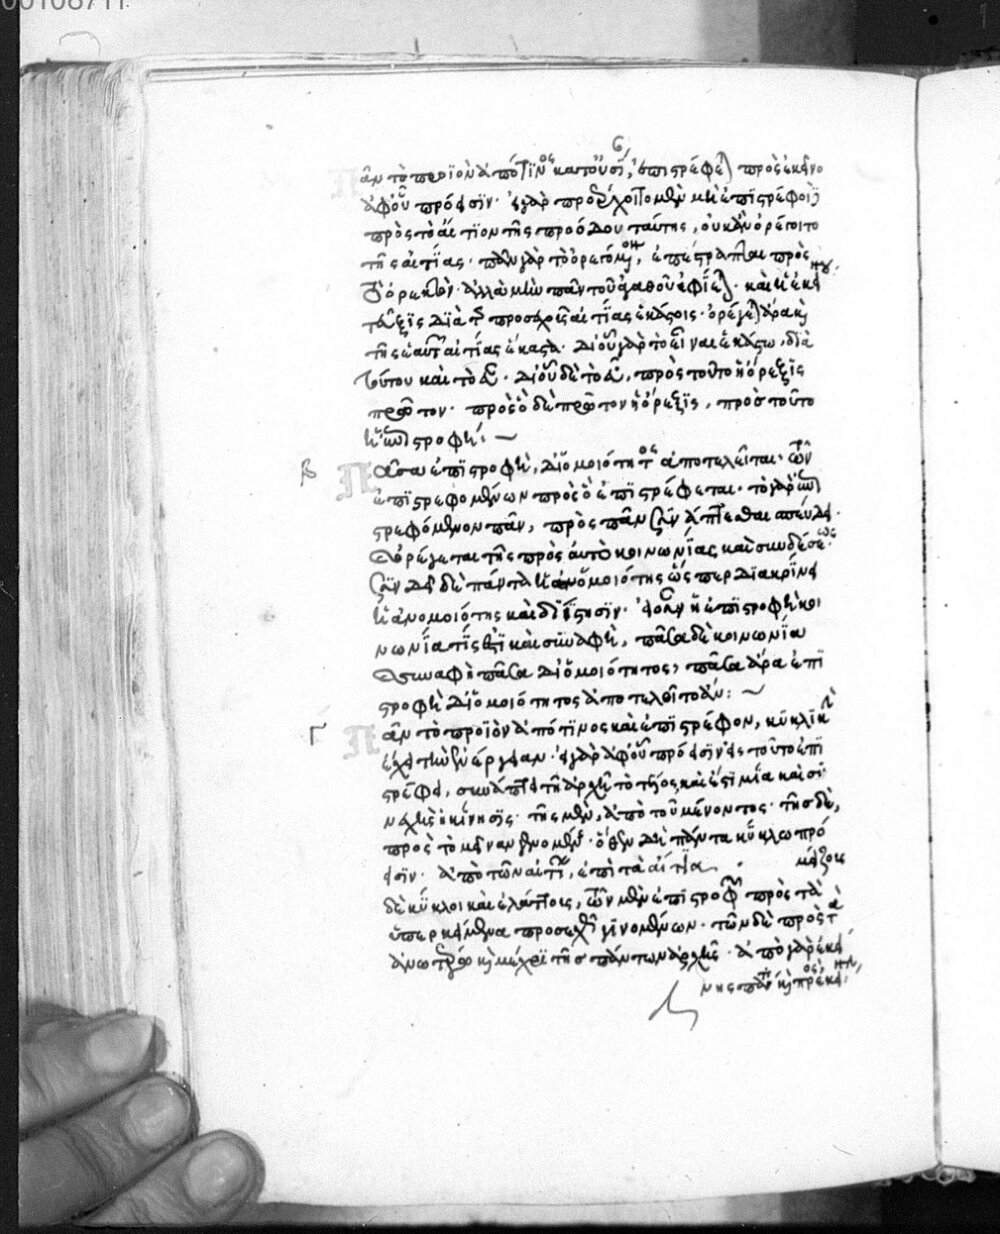 00108711
Πᾶν τὸ προϊὸν ἀπό τινος κατ' οὐσίαν, ἐπιστρέφεται πρὸς ἐκεῖνο
ἀφ' οὗ πρόεισιν· εἰ γὰρ προέρχοιτο μὲν μὴ ἐπιστρέφοι
πρὸς τὸ αἴτιον τῆς προόδου ταύτης, οὐκ ἂν ὀρέγοιτο
τῆς αἰτίας· πᾶν γὰρ τὸ ὀρεγόμενον, ἐπέστραπται πρὸς
τὸ ὀρεκτόν· ἀλλὰ μὴν πᾶν τοῦ ἀγαθοῦ ἐφίεται· καὶ ἡ ἐκεί
τεῦξις διὰ τῆς προσεχοῦς αἰτίας ἑκάστοις· ὀρέγεται ἄρα καὶ
τῆς ἑαυτῶν αἰτίας ἕκαστα· δι' οὗ γὰρ τὸ εἶναι ἑκάστῳ, διὰ
τούτου καὶ τὸ εὖ· δι' οὗ δὲ τὸ εὖ, πρὸς τοῦτο ἡ ὄρεξις
πρῶτον· πρὸς ὃ δὲ πρῶτον ἡ ὄρεξις, πρὸς τοῦτο
ἡ ἐπιστροφή: ~
β Πᾶσα ἐπιστροφὴ, δι' ὁμοιότητος ἀποτελεῖται· τῶν
ἐπιστρεφομένων πρὸς ὃ ἐπιστρέφεται· τὸ γὰρ ἐπι
στρεφόμενον πᾶν, πρὸς πᾶν συνάπτεσθαι σπεύδει·
καὶ ὀρέγεται τῆς πρὸς αὐτὸ κοινωνίας καὶ συνδέσεως·
συνδεῖ δὲ πάντα ἡ ὁμοιότης ὥσπερ διακρίνει
ἡ ἀνομοιότης καὶ διΐστησιν· εἰ οὖν ἡ ἐπιστροφὴ κοι
νωνία τίς ἐστι καὶ συναφὴ, πᾶσα δὲ κοινωνία
καὶ συναφὴ πᾶσα δι' ὁμοιότητος, πᾶσα ἄρα ἐπι
στροφὴ δι' ὁμοιότητος ἀποτελοῖτο ἄν: ~
Γ Πᾶν τὸ προϊὸν ἀπό τινος καὶ ἐπιστρέφον, κυκλικὴν
ἔχει τὴν ἐνέργειαν· εἰ γὰρ ἀφ' οὗ πρόεισιν εἰς τοῦτο ἐπι
στρέφει, συνάπτει τῇ ἀρχῇ τὸ τέλος, καὶ ἔστι μία καὶ συ
νεχὴς ἡ κίνησις· τῆς μὲν, ἀπὸ τοῦ μένοντος· τῆς δὲ,
πρὸς τὸ μεῖναν γενομένης· ὅθεν δὴ πάντα κύκλῳ πρό
εισιν· ἀπὸ τῶν αἰτίων, ἐπὶ τὰ αἴτια· μείζους
δὲ κύκλοι καὶ ἐλάττους, τῶν μὲν ἐπιστροφῶν πρὸς τὰ
ὑπερκείμενα προσεχῶς γινομένων· τῶν δὲ πρὸς τὰ
ἀνωτέρω καὶ μέχρι τῆς πάντων ἀρχῆς· ἀπὸ γὰρ ἐκεί
νης πάντα καὶ πρὸς ἐκείνην